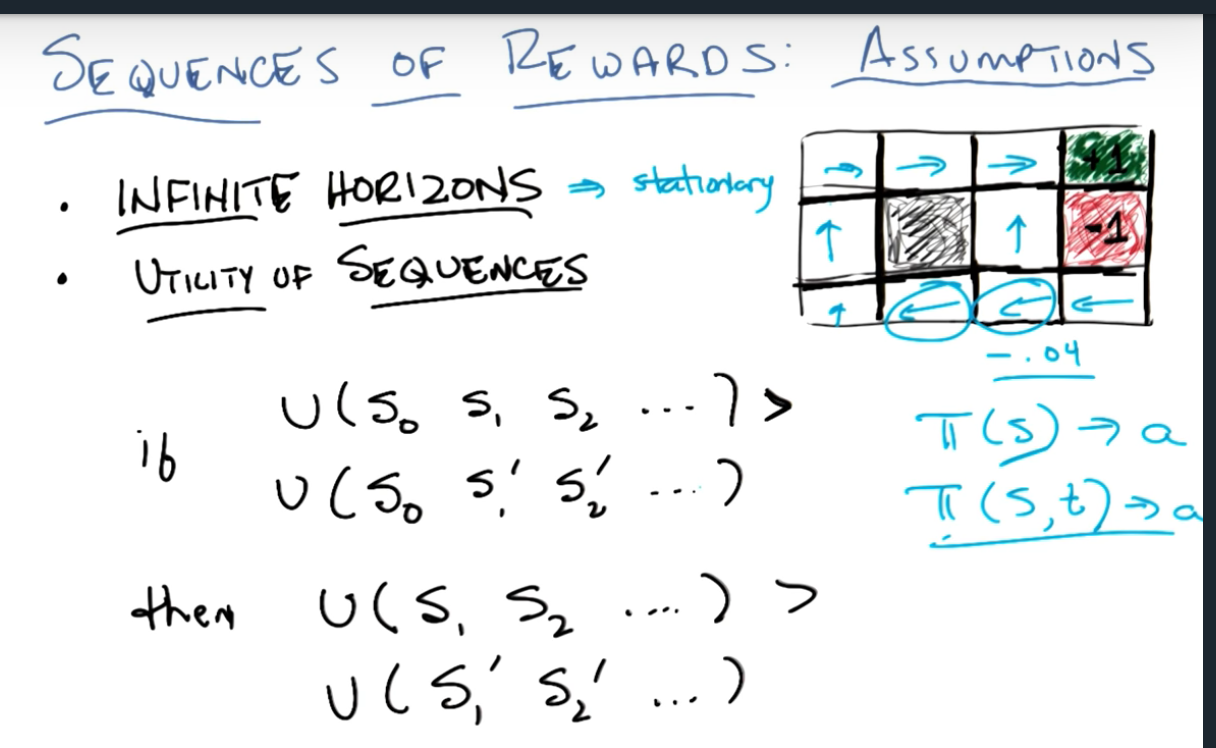 SEQUENCES OF REWARDS: ASSUMPTIONS
• INFINITE HORIZONS ⇒ stationary
• UTILITY OF SEQUENCES
→ → → +1
↑ ↑ -1
↑ ← ← ←
-.04
if U(S₀ S₁ S₂ ...) >
U(S₀ S₁′ S₂′ ...)
π(s) → a
π(s,t) → a
then U(S₁ S₂ ....) >
U(S₁′ S₂′ ...)